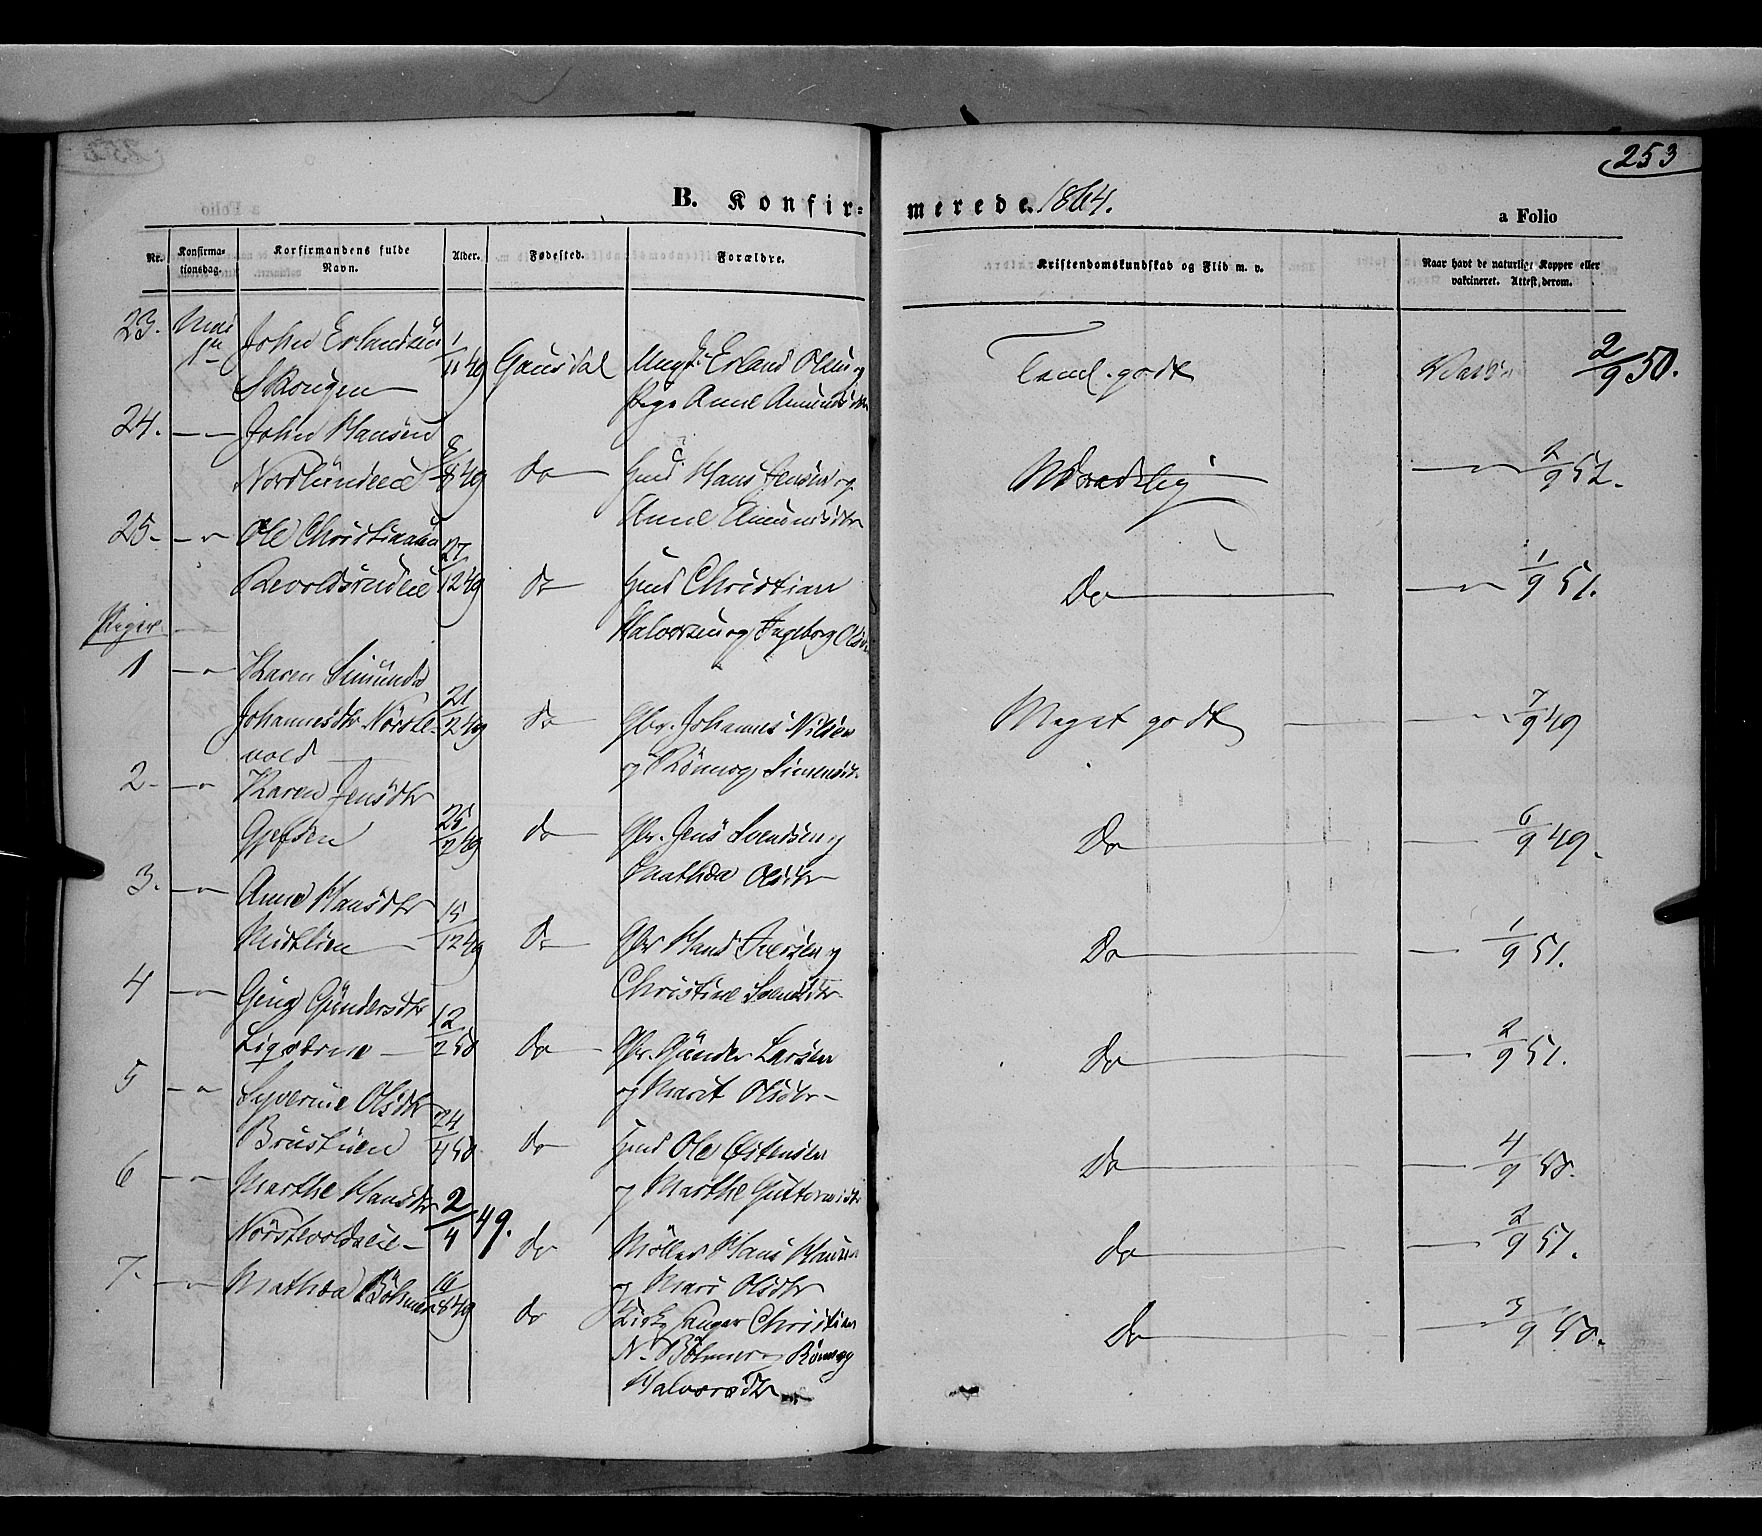 253
B. Konfirmerede 1864.
a Folio
Nr.
Konfirmationsdag.
Konfirmandens fulde Navn.
Alder.
Fødested.
Forældre.
Kristendomskundskab og Flid m. v.
Naar havt de naturlige Kopper eller vakcineret. Attest derom.
23. Mai 1ste John Erlandsen 1/11 49 Gausdal Ungk. Erland Olsen og Taml. godt Vacc. 2/9 50.
Skougen Pige Anne Amundsdtr
24. John Hansen
Nordlundeie 8/8 49 do Hmd Hans Jensen og Maadelig 2/9 52.
Anne Amundsdtr
25. Ole Christiansen
27/12 49 do Hmd Christian Do 1/9 51.
Halvorsen og Ingeborg Olsdtr
Piger
1 Karen Simunda
Johannesdtr Nörste- 21/2 49 do Gbr. Johannes Nilsen Meget godt 7/9 49
vold og Rönnog Simensdtr
2. Karen Jensdtr
Gjefsen 25/2 49 do Gbr. Jens Svendsen og Do 6/9 49.
Mathea Olsdtr
3. Anne Hansdtr
Midtlien 15/12 49 Do Gbr Hans Iversen og Do 1/9 51.
Christine Svendsdtr
4 Gundersdtr
12/2 50 do Gbr. Gunder Larsen Do 2/9 51.
og Marit Olsdtr
5 Syverine Olsdtr
Brustuen 24/4 50 do Hmd Ole Østensen Do 4/9 50.
og Marthe Guttormsdtr
6 Marthe Hansdtr 2/4 49.
Nörstevoldseie do Møller Hans Hansen do 2/9 51.
og Mari Olsdtr
7. Mathea Böhmer 16/8 49 do Kirkesanger Christian Do 3/9 50.
N. Böhmer og Rönnog
Halvorsdtr